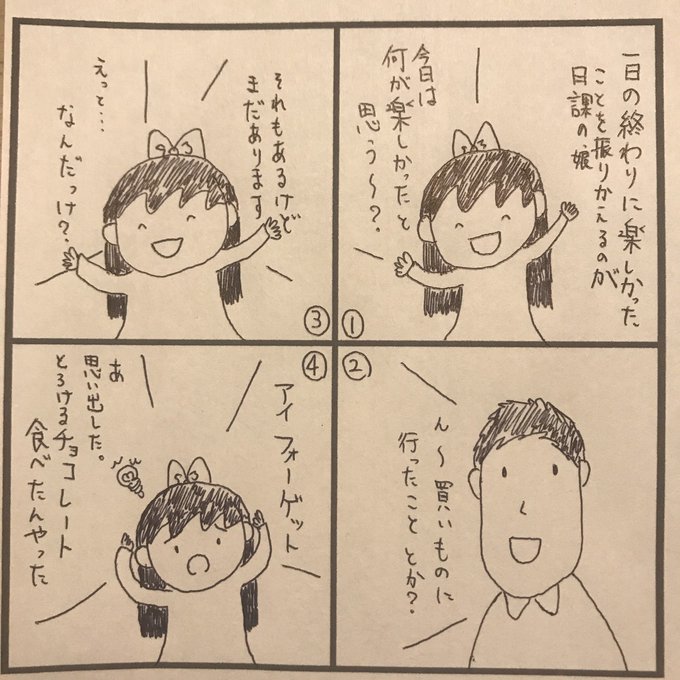 一日の終わりに楽しかった
ことを振りかえるのが
日課の娘
今日は
何が楽しかったと
思う〜?
①
②
ん〜買いものに
行ったこととか?
③
それもあるけど
まだあります
えっと…
なんだっけ?
④
アイフォーゲット
あ
思い出した。
とろけるチョコレート
食べたんやった